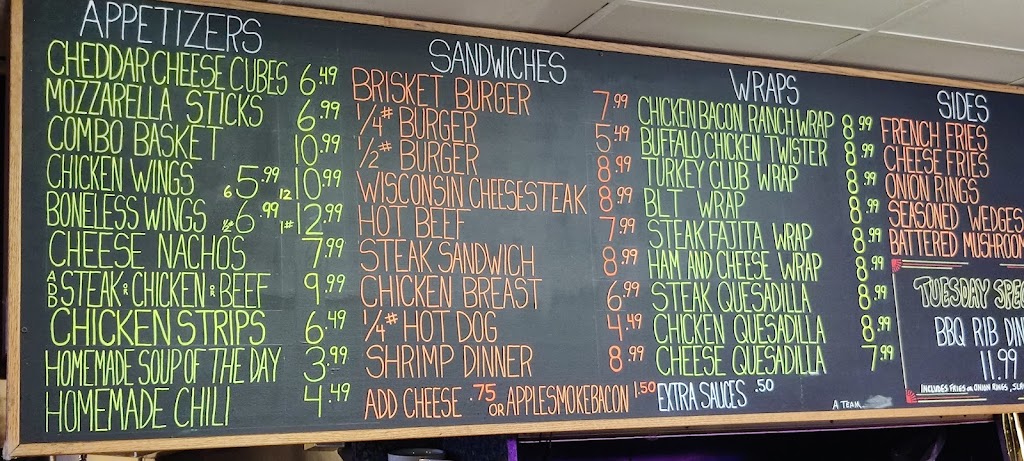 APPETIZERS
CHEDDAR CHEESE CUBES 6.49
MOZZARELLA STICKS 6.99
COMBO BASKET 10.99
CHICKEN WINGS 6 5.99 12 10.99
BONELESS WINGS ½# 6.99 1# 12.99
CHEESE NACHOS 7.99
ADD STEAK OR CHICKEN OR BEEF 9.99
CHICKEN STRIPS 6.49
HOMEMADE SOUP OF THE DAY 3.99
HOMEMADE CHILI 4.49
SANDWICHES
BRISKET BURGER 7.99
1/4# BURGER 5.49
1/2# BURGER 8.99
WISCONSIN CHEESESTEAK 8.99
HOT BEEF 7.99
STEAK SANDWICH 8.99
CHICKEN BREAST 6.99
1/4# HOT DOG 4.49
SHRIMP DINNER 8.99
ADD CHEESE .75 OR APPLESMOKEBACON 1.50
WRAPS
CHICKEN BACON RANCH WRAP 8.99
BUFFALO CHICKEN TWISTER 8.99
TURKEY CLUB WRAP 8.99
BLT WRAP 8.99
STEAK FAJITA WRAP 8.99
HAM AND CHEESE WRAP 8.99
STEAK QUESADILLA 8.99
CHICKEN QUESADILLA 8.99
CHEESE QUESADILLA 7.99
EXTRA SAUCES .50
A TEAM
SIDES
FRENCH FRIES
CHEESE FRIES
ONION RINGS
SEASONED WEDGES
BATTERED MUSHROOM
TUESDAY SPE
BBQ RIB DIN
11.99
INCLUDES FRIES OR ONION RINGS, SLA